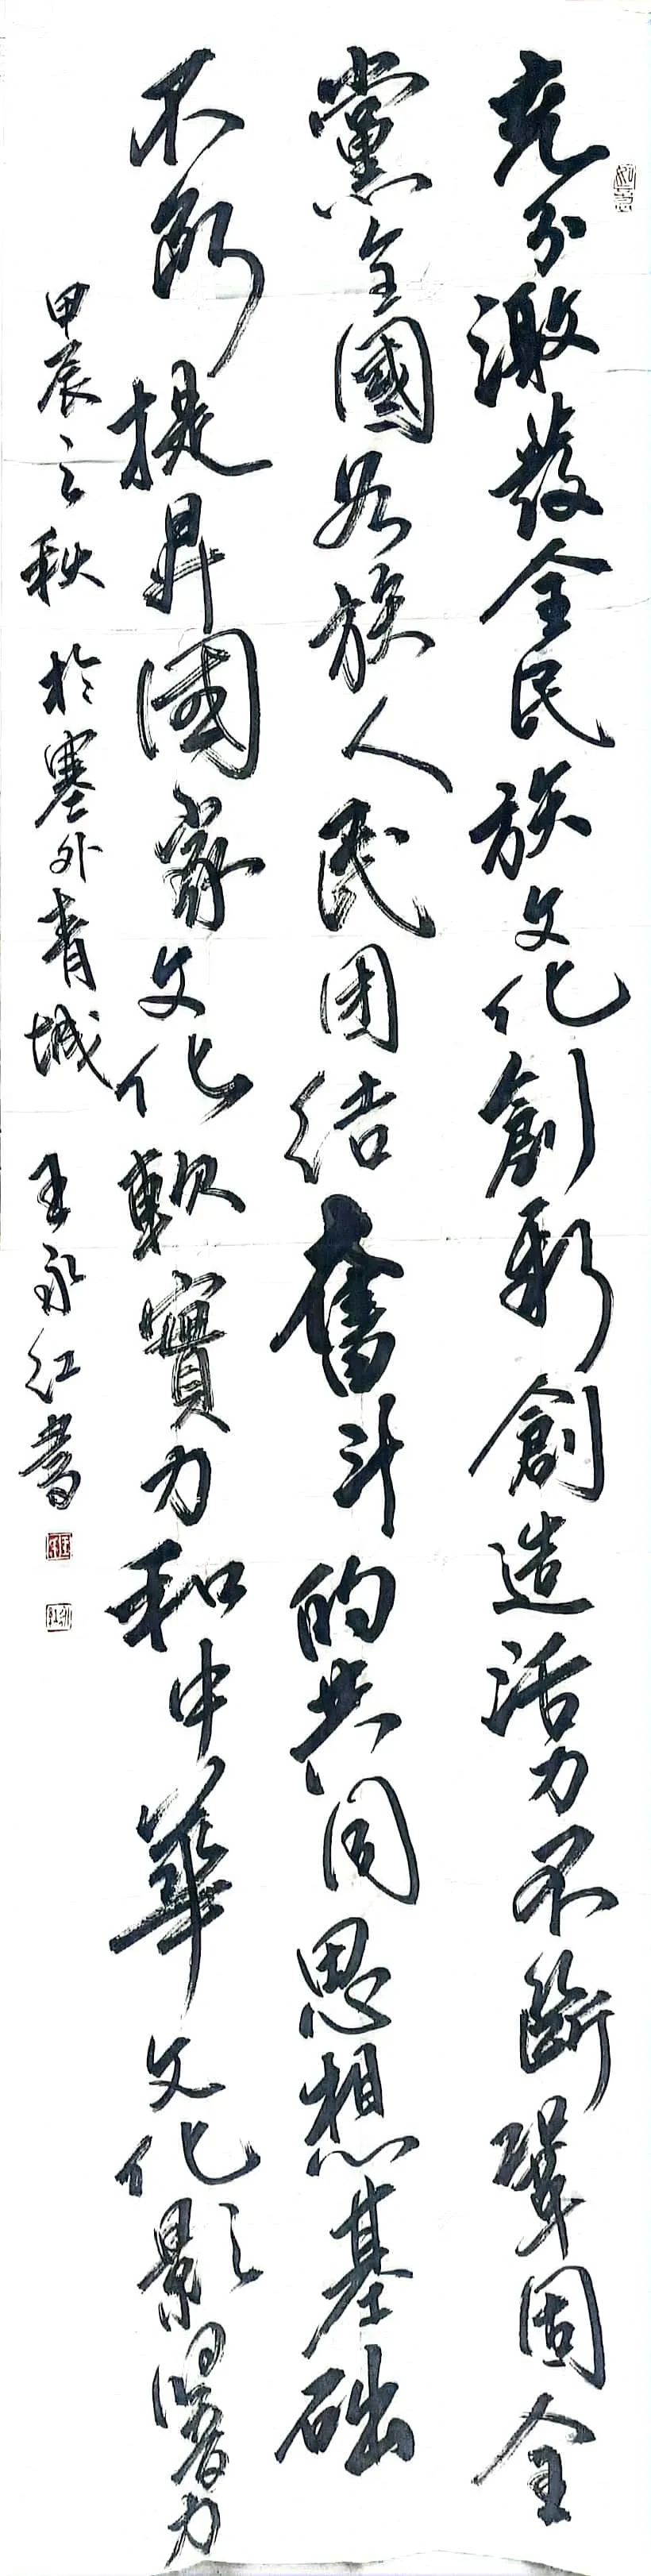 充分激發全民族文化創新創造活力不斷鞏固全
黨全國各族人民团结奮斗的共同思想基础
不断提昇國家文化軟實力和中華文化影響力
甲辰之秋於塞外青城王永红書